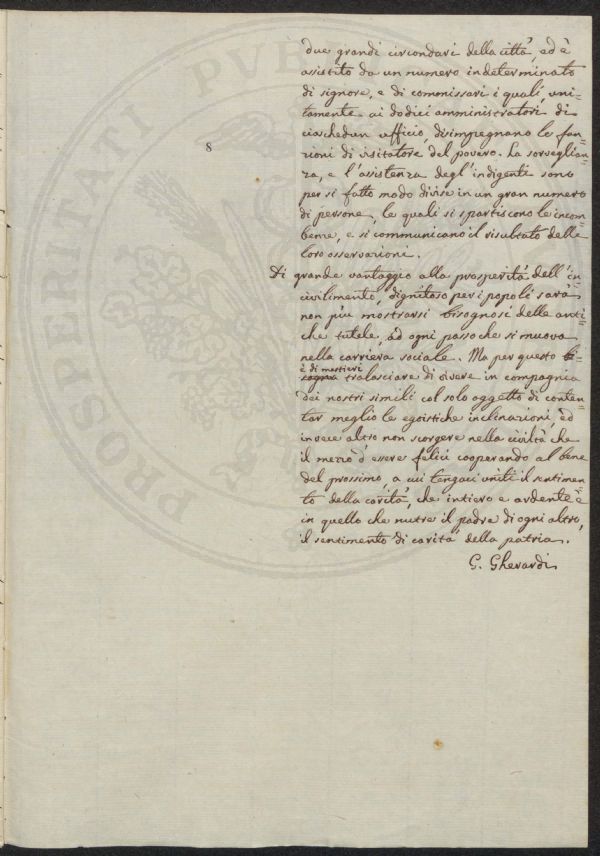 8
due grandi circondari della città, ed è
assistito da un numero indeterminato
di signore, e di commissari i quali, uni=
tamente ai dodici amministratori di
ciaschedun ufficio, disimpegnano le fun=
zioni di visitatore del povero. La sorveglian=
za, e l'assistenza degl'indigenti sono
per sì fatto modo divise in un gran numero
di persone, le quali si spartiscono le incom=
benze, e si communicano il risultato delle
loro osservazioni.
Di grande vantaggio alla prosperità dell'in=
civilimento, dignitoso per i popoli sarà
non più mostrarsi bisognosi delle anti=
che tutele, ad ogni passo che si muova
nella carriera sociale. Ma per questo bi=
è di mestieri
sogna tralasciare di vivere in compagnia
dei nostri simili col solo oggetto di conten=
tar meglio le egoistiche inclinazioni, ed
invece altro non scorgere nella civiltà che
il mezzo d'essere felici cooperando al bene
del prossimo, a cui tengaci uniti il sentimen=
to della carità, che intiero e ardente è
in quello che nutre il padre di ogni altro,
il sentimento di carità della patria.
G. Gherardi
PROSPERITATI PVBLI